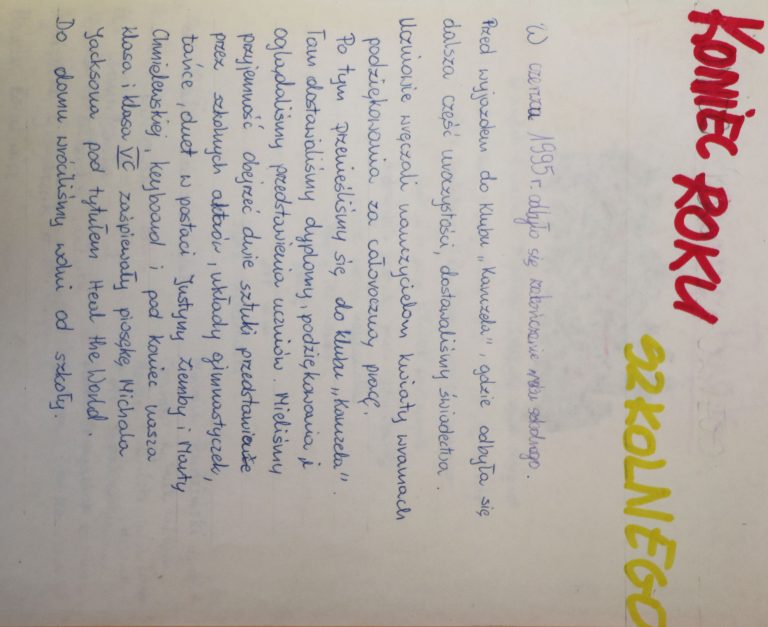 KONIEC ROKU
SZKOLNEGO
W czerwcu 1995 r. odbyło się zakończenie roku szkolnego.
Przed wyjazdem do klubu „Karuzela", gdzie odbyła się
dalsza część uroczystości, dostawaliśmy świadectwa.
Uczniowie wręczali nauczycielom kwiaty w ramach
podziękowania za całoroczną pracę.
Po tym przenieśliśmy się do klubu „Karuzela".
Tam dostawaliśmy dyplomy, podziękowania i
oglądaliśmy przedstawienia uczniów. Mieliśmy
przyjemność obejrzeć dwie sztuki przedstawione
przez szkolnych aktorów, układy gimnastyczek,
tańce, duet w postaci Justyny Ziemby i Marty
Chmielewskiej, keyboard i pod koniec nasza
klasa i klasa VC zaśpiewały piosękę Michala
Jacksona pod tytułem Heal the World.
Do domu wróciliśmy wolni od szkoły.